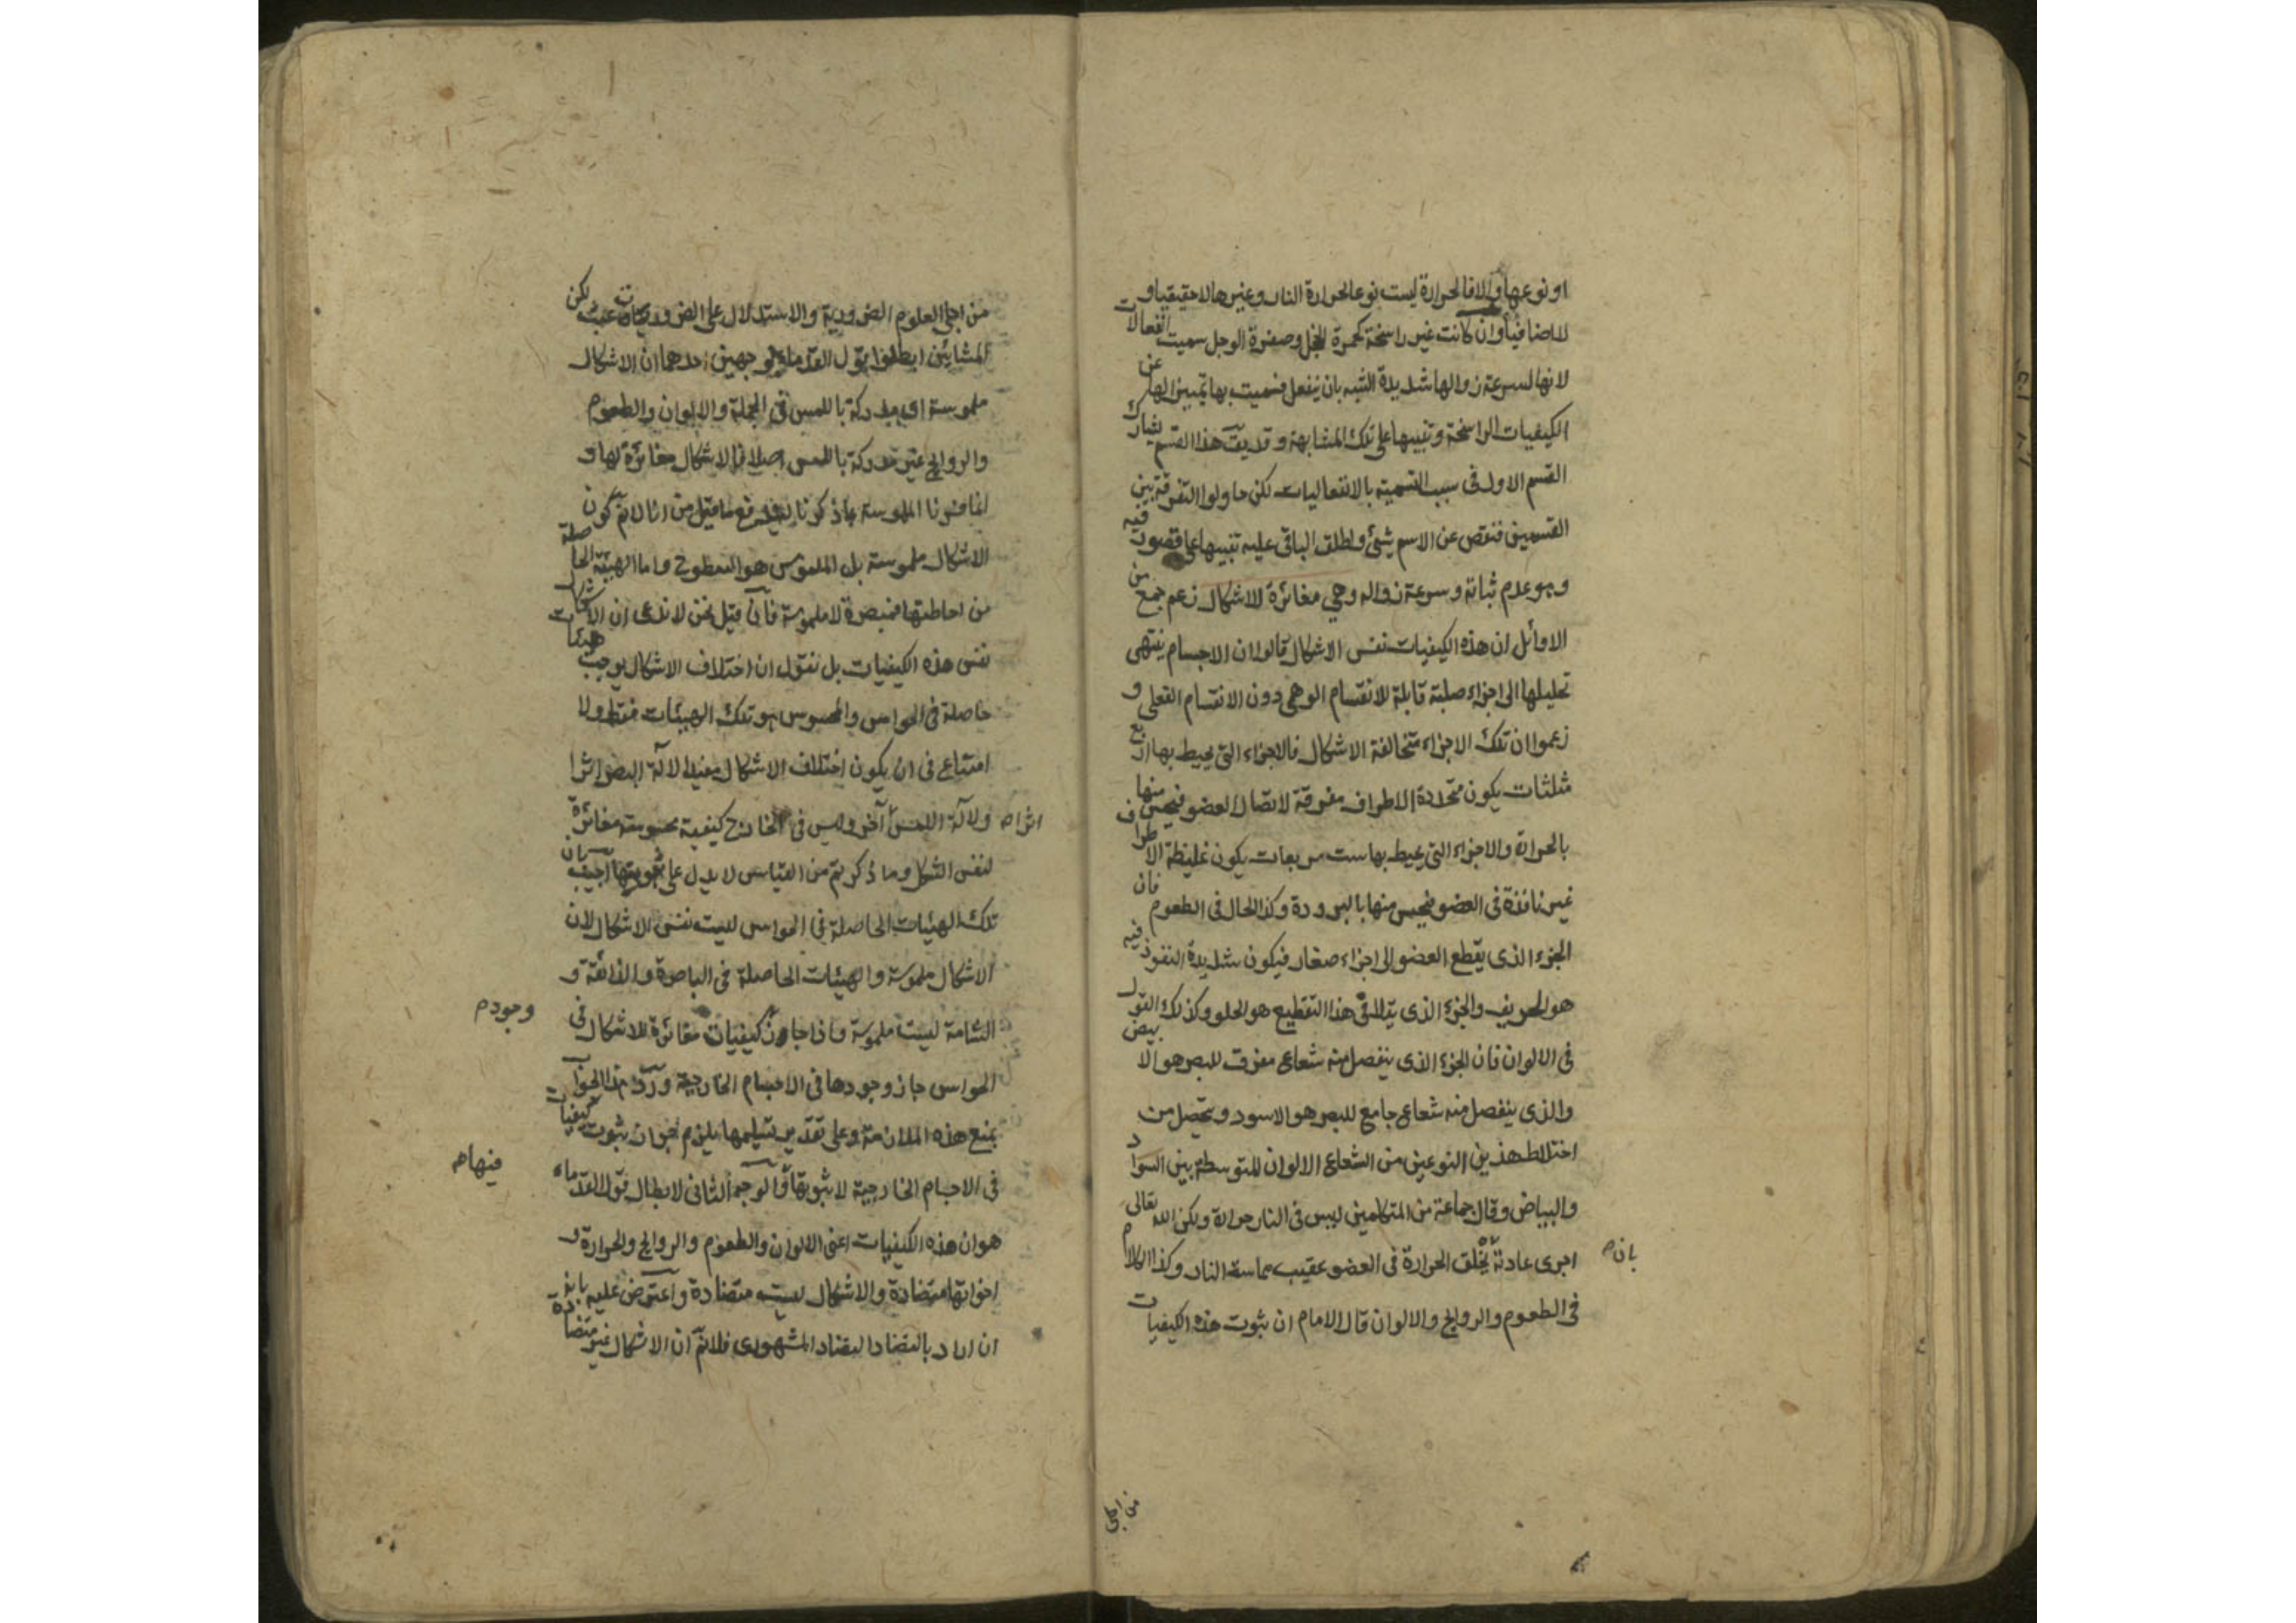 او نوعها والا فالحرارة ليست نوعا لحرارة النار وغيرها لا حقيقيا و
لا اضافيا وان كانت غير راسخة كحمرة الخجل وصفرة الوجل سميت انفعالات
لانها لسرعة زوالها شديدة الشبه بان ينفعل فسميت بها تمييزا لها عن
الكيفيات الراسخة وتنبيها على تلك المشابهة وقد يق هذا القسم يشارك
القسم الاول فى سبب التسمية بالانفعاليات لكن حاولوا التفرقة بين
القسمين فنقص عن الاسم شئ واطلق الباقى عليه تنبيها على قصور فيه
وهو عدم ثباته وسرعة زواله وهي مغائرة للاشكال زعم جمع من
الاوائل ان هذه الكيفيات نفس الاشكال قالوا ان الاجسام ينتهى
تحليلها الى اجزاء صلبة قابلة للانقسام الوهمى دون الانقسام الفعلى و
زعموا ان تلك الاجزاء متخالفة الاشكال فالاجزاء التى يحيط بها اربع
مثلثات يكون محددة الاطراف مفرقة لاتصال العضو فيحس منها
بالحرارة والاجزاء التى يحيط بها ست مربعات يكون غليظة الاطراف
غير نافذة فى العضو فيحس منها بالبرودة وكذا الحال فى الطعوم فان
الجزء الذى يقطع العضو الى اجزاء صغار فيكون شديدة النفوذ فيه
هو الحريف والجزء الذى يتلافى هذا التقطيع هو الحلو وكذلك القول
فى الالوان فان الجزء الذى ينفصل منه شعاع مفرق للبصر هو الابيض
والذى ينفصل منه شعاع جامع للبصر هو الاسود ويتحصل من
اختلاط هذين النوعين من الشعاع الالوان المتوسطة بين السواد
والبياض وقال جماعة من المتكلمين ليس فى النار حرارة ولكن الله تعالى
اجرى عادته يخلق الحرارة فى العضو عقيب مماسة النار وكذا الكلام
بان
فى الطعوم والروايح والالوان قال الامام ان ثبوت هذه الكيفيات
من اجلى
من اجلى العلوم الضرورية والاستدلال على الضروريات عبث لكن
المشائين ابطلوا قول القدماء بوجهين احدهما ان الاشكال
ملموسة اى مدركة باللمس فى الجملة والالوان والطعوم
والروايح غير مدركة باللمس اصلا فالاشكال مغائرة لها و
انما فسرنا الملموسة بما ذكرنا ليندفع ما قيل من انا لانم كون
الاشكال ملموسة بل الملموس هو السطوح واما الهيئة الحاصلة
من احاطتها فمبصرة لا ملموسة فان قيل نحن لا ندعى ان الاشكال
نفس هذه الكيفيات بل نقول ان اختلاف الاشكال يوجب هيئات
حاصلة فى الحواس والمحسوس هو تلك الهيئات فقط ولا
امتناع فى ان يكون اختلاف الاشكال مفيدا لآلة البصر اثرا
ولآلة اللمس آخر وليس فى الخارج كيفية محسوسة مغائرة
اثرا
لنفس الشكل وما ذكرتم من القياس لا يدل على ثبوتها اجيب بان
تلك الهيئات الحاصلة فى الحواس ليست نفس الاشكال لان
الاشكال ملموسة والهيئات الحاصلة فى الباصرة والذائقة و
الشامة ليست ملموسة واذا جاز كيفيات مغائرة للاشكال فى
وجود
الحواس جاز وجودها فى الاجسام الخارجية ورد هذا الجواب
بمنع هذه الملازمة وعلى تقدير تسليمها يلزم جواز ثبوت كيفيات
فى الاجسام الخارجية لا ثبوتها والوجه الثانى لابطال قول القدماء
فيها
هو ان هذه الكيفيات اعنى الالوان والطعوم والروايح والحرارة و
اخواتها متضادة والاشكال ليست متضادة واعترض عليه بانه
ان اراد بالتضاد التضاد المشهورى فلانم ان الاشكال غير متضادة